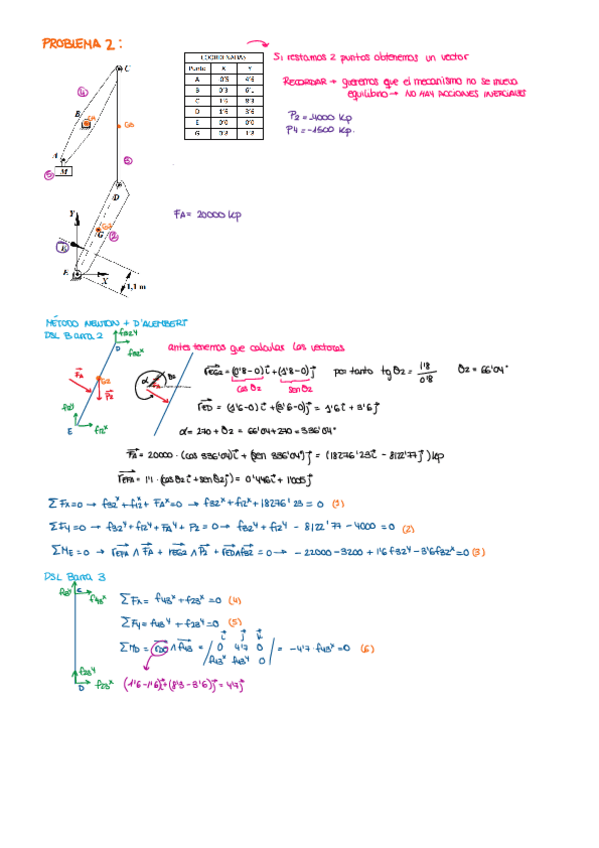 PROBLEMA 2:
COORDENADAS
Punto X Y
A 0'5 4'6
B 0'9
C 1'6 8'3
D 1'6 3'6
E 0'0 0'0
G
Si restamos 2 puntos obtenemos un vector
RECORDAR → queremos que el mecanismo no se mueva
equilibrio → NO HAY ACCIONES INERCIALES
P2 = -4000 Kp
P4 = -1500 Kp.
FA = 20000 Kp
C
4
B
A
M
5
3
D
Y
G
2
E
X
1,1 m
MÉTODO NEWTON + D'ALEMBERT
DSL Barra 2
antes tenemos que calcular los vectores
rEG2 = (0'8-0)i + (1'8-0)j por tanto tg θ2 = 1'8/0'8 θ2 = 66'04°
cos θ2 sen θ2
rED = (1'6-0)i + (3'6-0)j = 1'6i + 3'6j
α = 270 + θ2 = 66'04 + 270 = 336'04°
FA = 20000 · (cos 336'04)i + (sen 336'04°)j = (18276'23i - 8122'77j) Kp
rEFA = 1'1 · (cos θ2 i + sen θ2 j) = 0'446i + 1'005j
ΣFx=0 → f32ˣ + f12ˣ + FAˣ = 0 → f32ˣ + f12ˣ + 18276'23 = 0 (1)
ΣFy=0 → f32ʸ + f12ʸ + FAʸ + P2 = 0 → f32ʸ + f12ʸ - 8122'77 - 4000 = 0 (2)
ΣME=0 → rEFA ∧ FA + rEG2 ∧ P2 + rED ∧ f32 = 0 → -22000 - 3200 + 1'6 f32ʸ - 3'6 f32ˣ = 0 (3)
DSL Barra 3
ΣFx = f43ˣ + f23ˣ = 0 (4)
ΣFy = f43ʸ + f23ʸ = 0 (5)
i j k
ΣMD = rDC ∧ f43 = | 0 4'7 0 | = -4'7 · f43ˣ = 0 (6)
f43ˣ f43ʸ 0
D f23ˣ (1'6-1'6)i + (8'3-3'6)j = 4'7j